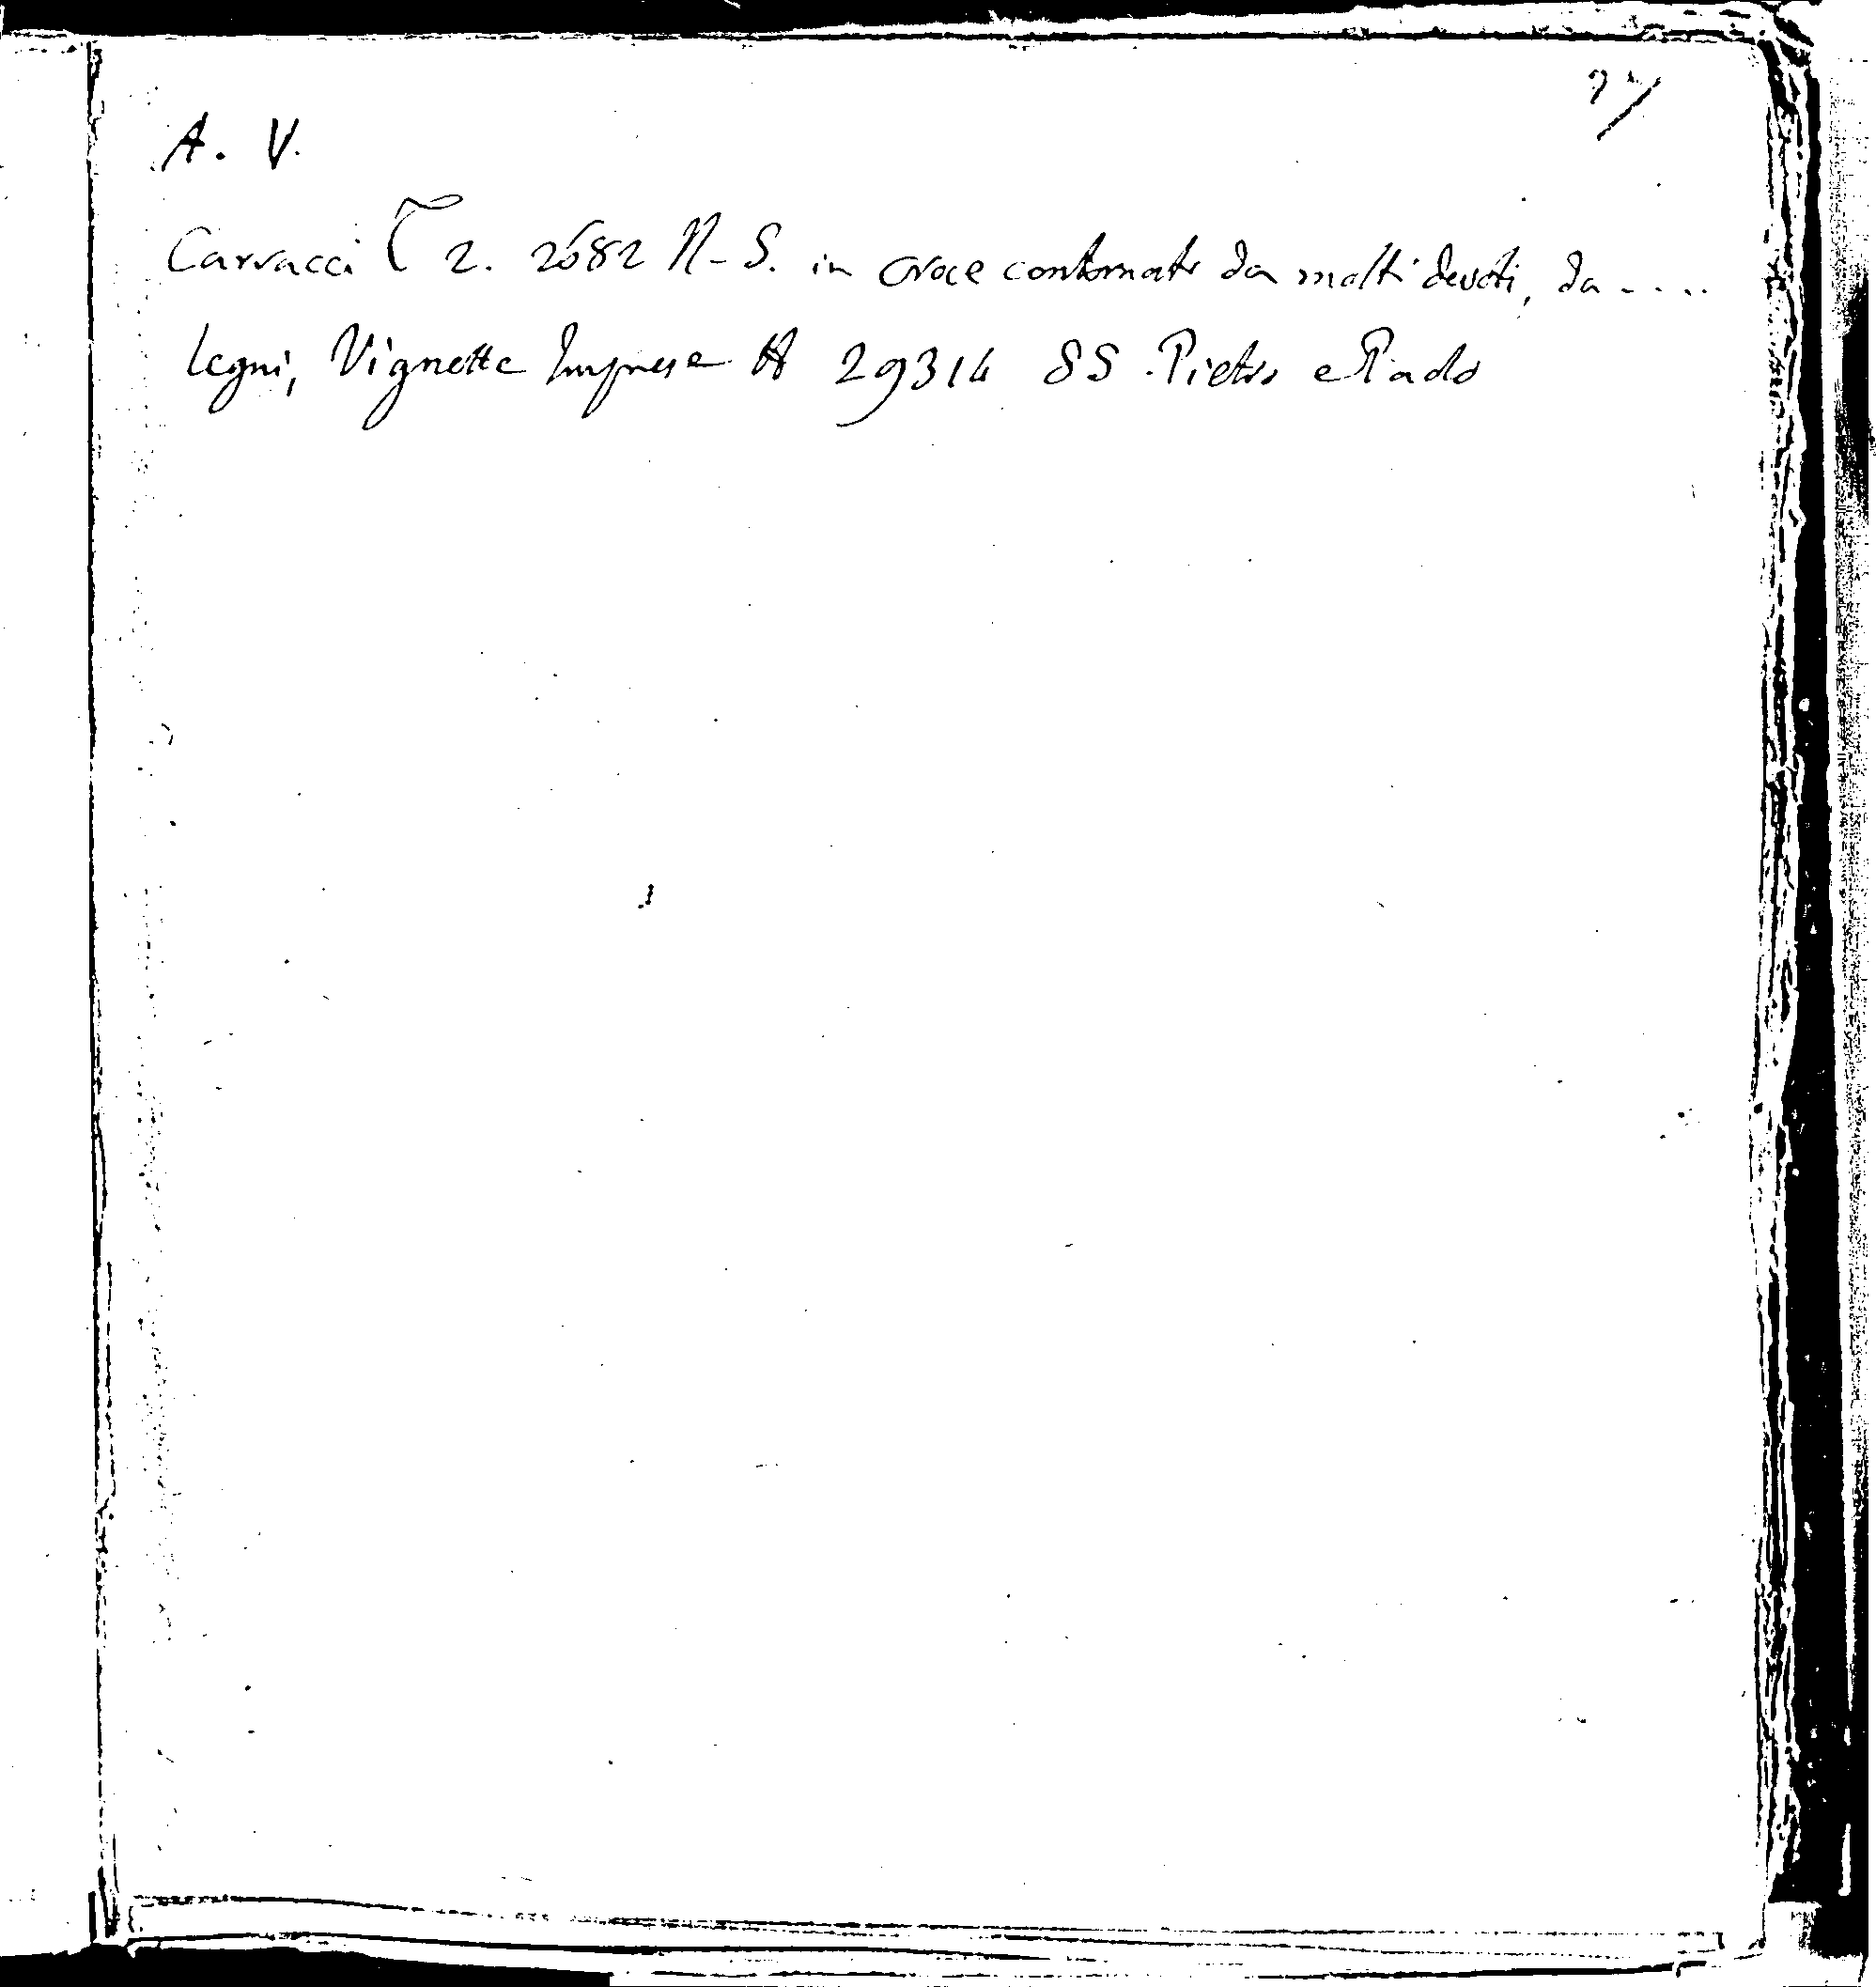 37
A. V.
Carracci T 2. 2682 N-S. in croce contornato da molti devoti, da ....
legni, Vignette Imprese A 29314 SS. Pietro e Paolo